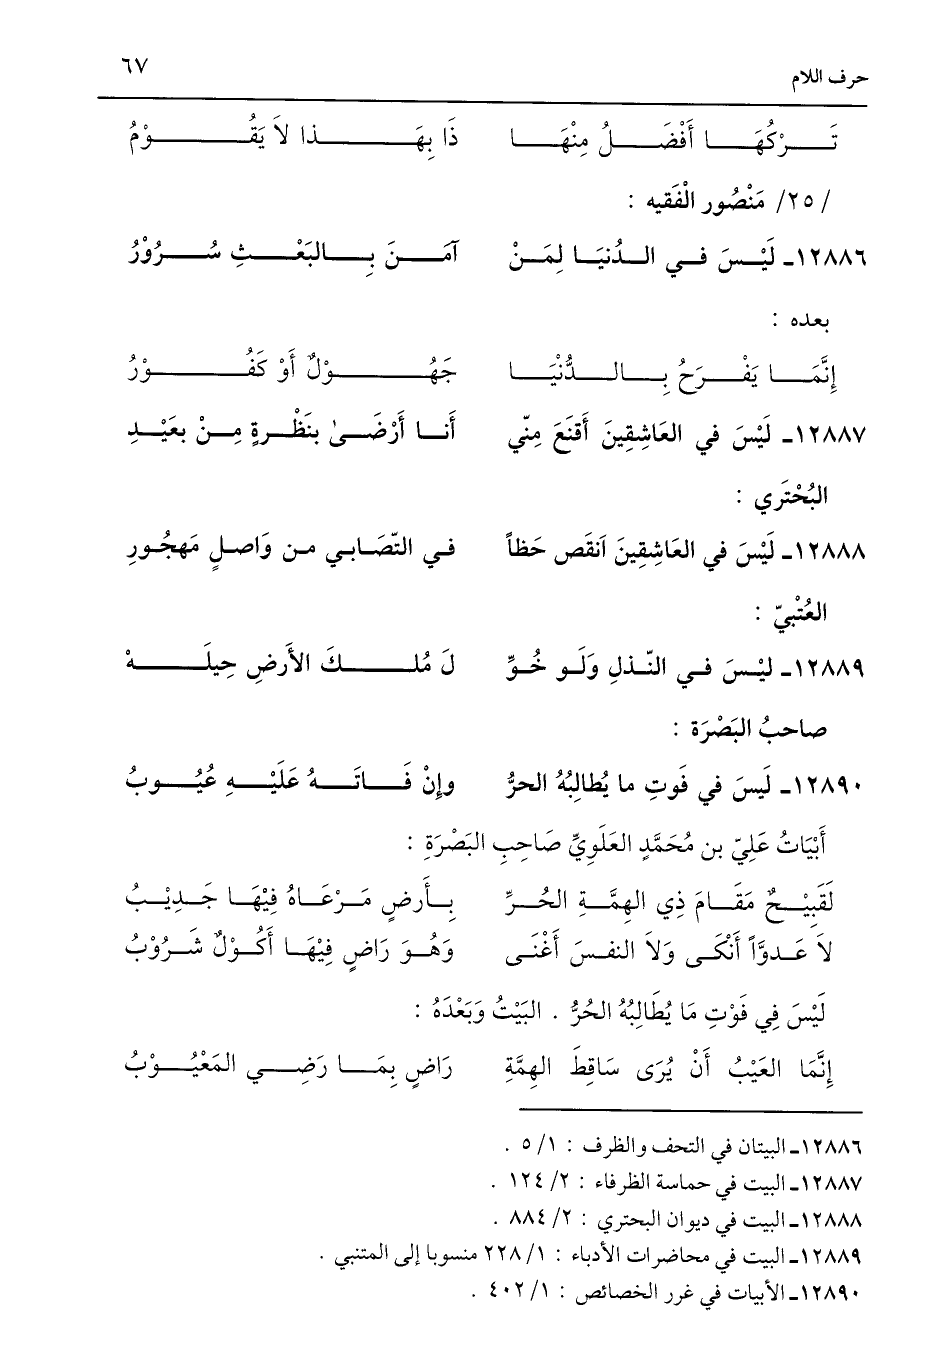 حرف اللام ٦٧
تَرْكُهَا أَفْضَلُ مِنْهَا ذَا بِهَذا لاَ يَقُوْمُ
/ ٢٥/ مَنْصُور الْفَقيه :
١٢٨٨٦ـ لَيْسَ في الدُنيَا لِمَنْ آمَنَ بِالبَعْثِ سُرُوْرُ
بعده :
إنَّمَا يَفْرَحُ بِالدُّنْيَا جَهُوْلٌ أَوْ كَفُوْرُ
١٢٨٨٧ـ لَيْسَ في العَاشِقِينَ أَقنَعَ مِنّي أَنا أَرْضَىٰ بنَظْرةٍ مِنْ بعَيْدِ
البُحْتَري :
١٢٨٨٨ـ لَيْسَ في العَاشِقِينَ اَنقَص حَظاً في التّصَابي من وَاصلٍ مَهجُورِ
العُتْبيّ :
١٢٨٨٩ـ ليْسَ في النّذلِ وَلَو خُوِّ لَ مُلكَ الأَرضِ حِيلَهْ
صاحبُ البَصْرَة :
١٢٨٩٠ـ لَيسَ في فَوتِ ما يُطالِبُهُ الحرُّ وإنْ فَاتَهُ عَلَيْهِ عُيُوبُ
أَبْيَاتُ عَلِيّ بن مُحَمَّدٍ العَلَويِّ صَاحِبِ البَصْرَةِ :
لَقَبِيْحٌ مَقَامَ ذِي الهِمَّةِ الحُرِّ بِأَرضٍ مَرْعَاهُ فِيْهَا جَدِيْبُ
لاَ عَدوَّاً أَنْكَى وَلاَ النفسَ أَغْنَى وَهُوَ رَاضٍ فِيْهَا أَكُوْلٌ شَرُوْبُ
لَيْسَ فِي فَوْتِ مَا يُطَالِبُهُ الحُرُّ . البَيْتُ وَبَعْدَهُ :
إِنَّمَا العَيْبُ أَنْ يُرَى سَاقِطَ الهِمَّةِ رَاضٍ بِمَا رَضِي المَعْيُوْبُ
١٢٨٨٦ـ البيتان في التحف والظرف : ١/ ٥ .
١٢٨٨٧ـ البيت في حماسة الظرفاء : ٢/ ١٢٤ .
١٢٨٨٨ـ البيت في ديوان البحتري : ٢/ ٨٨٤ .
١٢٨٨٩ـ البيت في محاضرات الأدباء : ١/ ٢٢٨ منسوبا إلى المتنبي .
١٢٨٩٠ـ الأبيات في غرر الخصائص : ١/ ٤٠٢ .